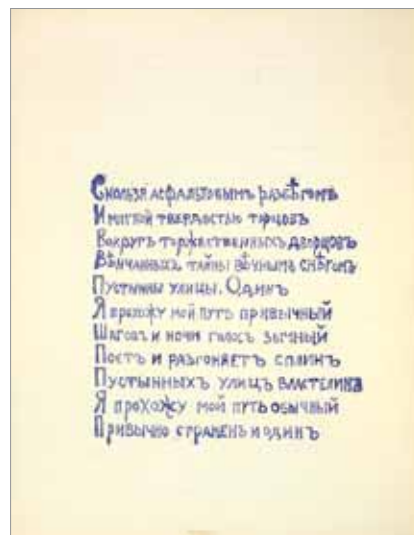 Скользя асфальтовымъ разбѣгомъ
И мягкой твердостью торцовъ
Вокругъ торжественныхъ дворцовъ
Вѣнчанныхъ тайны вѣчнымъ снѣгомъ
Пустынны улицы. Одинъ
Я прохожу мой путь привычный
Шаговъ и ночи голосъ зычный
Поетъ и разгоняетъ сплинъ
Пустынныхъ улицъ властелина
Я прохожу мой путь обычный
Привычно страненъ и одинъ